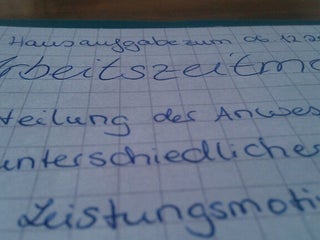 Hausaufgabe zum 06.12.2
Arbeitszeitmo
teilung des Anwes
unterschiedliche
Leistungsmoti